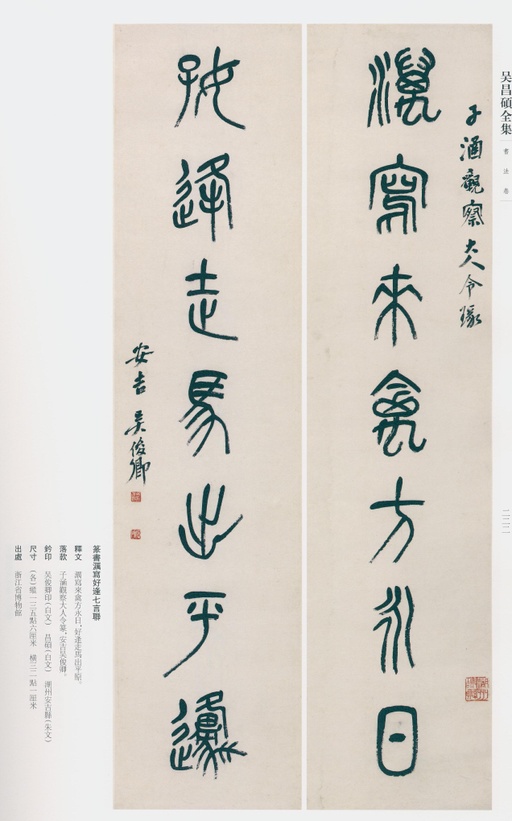 吴昌碩全集
書法卷
子涵觀察大人令篆
㶞寫來禽方永日
好逢走馬出平邍
安吉吴俊卿
篆書㶞寫好逢七言聯
釋文 㶞寫來禽方永日，好逢走馬出平原。
落款 子涵觀察大人令篆，安吉吴俊卿。
鈐印 吴俊卿印（白文） 昌碩（白文） 湖州安吉縣（朱文）
尺寸 （各）縱一三五點六厘米 橫三二點一厘米
出處 浙江省博物館